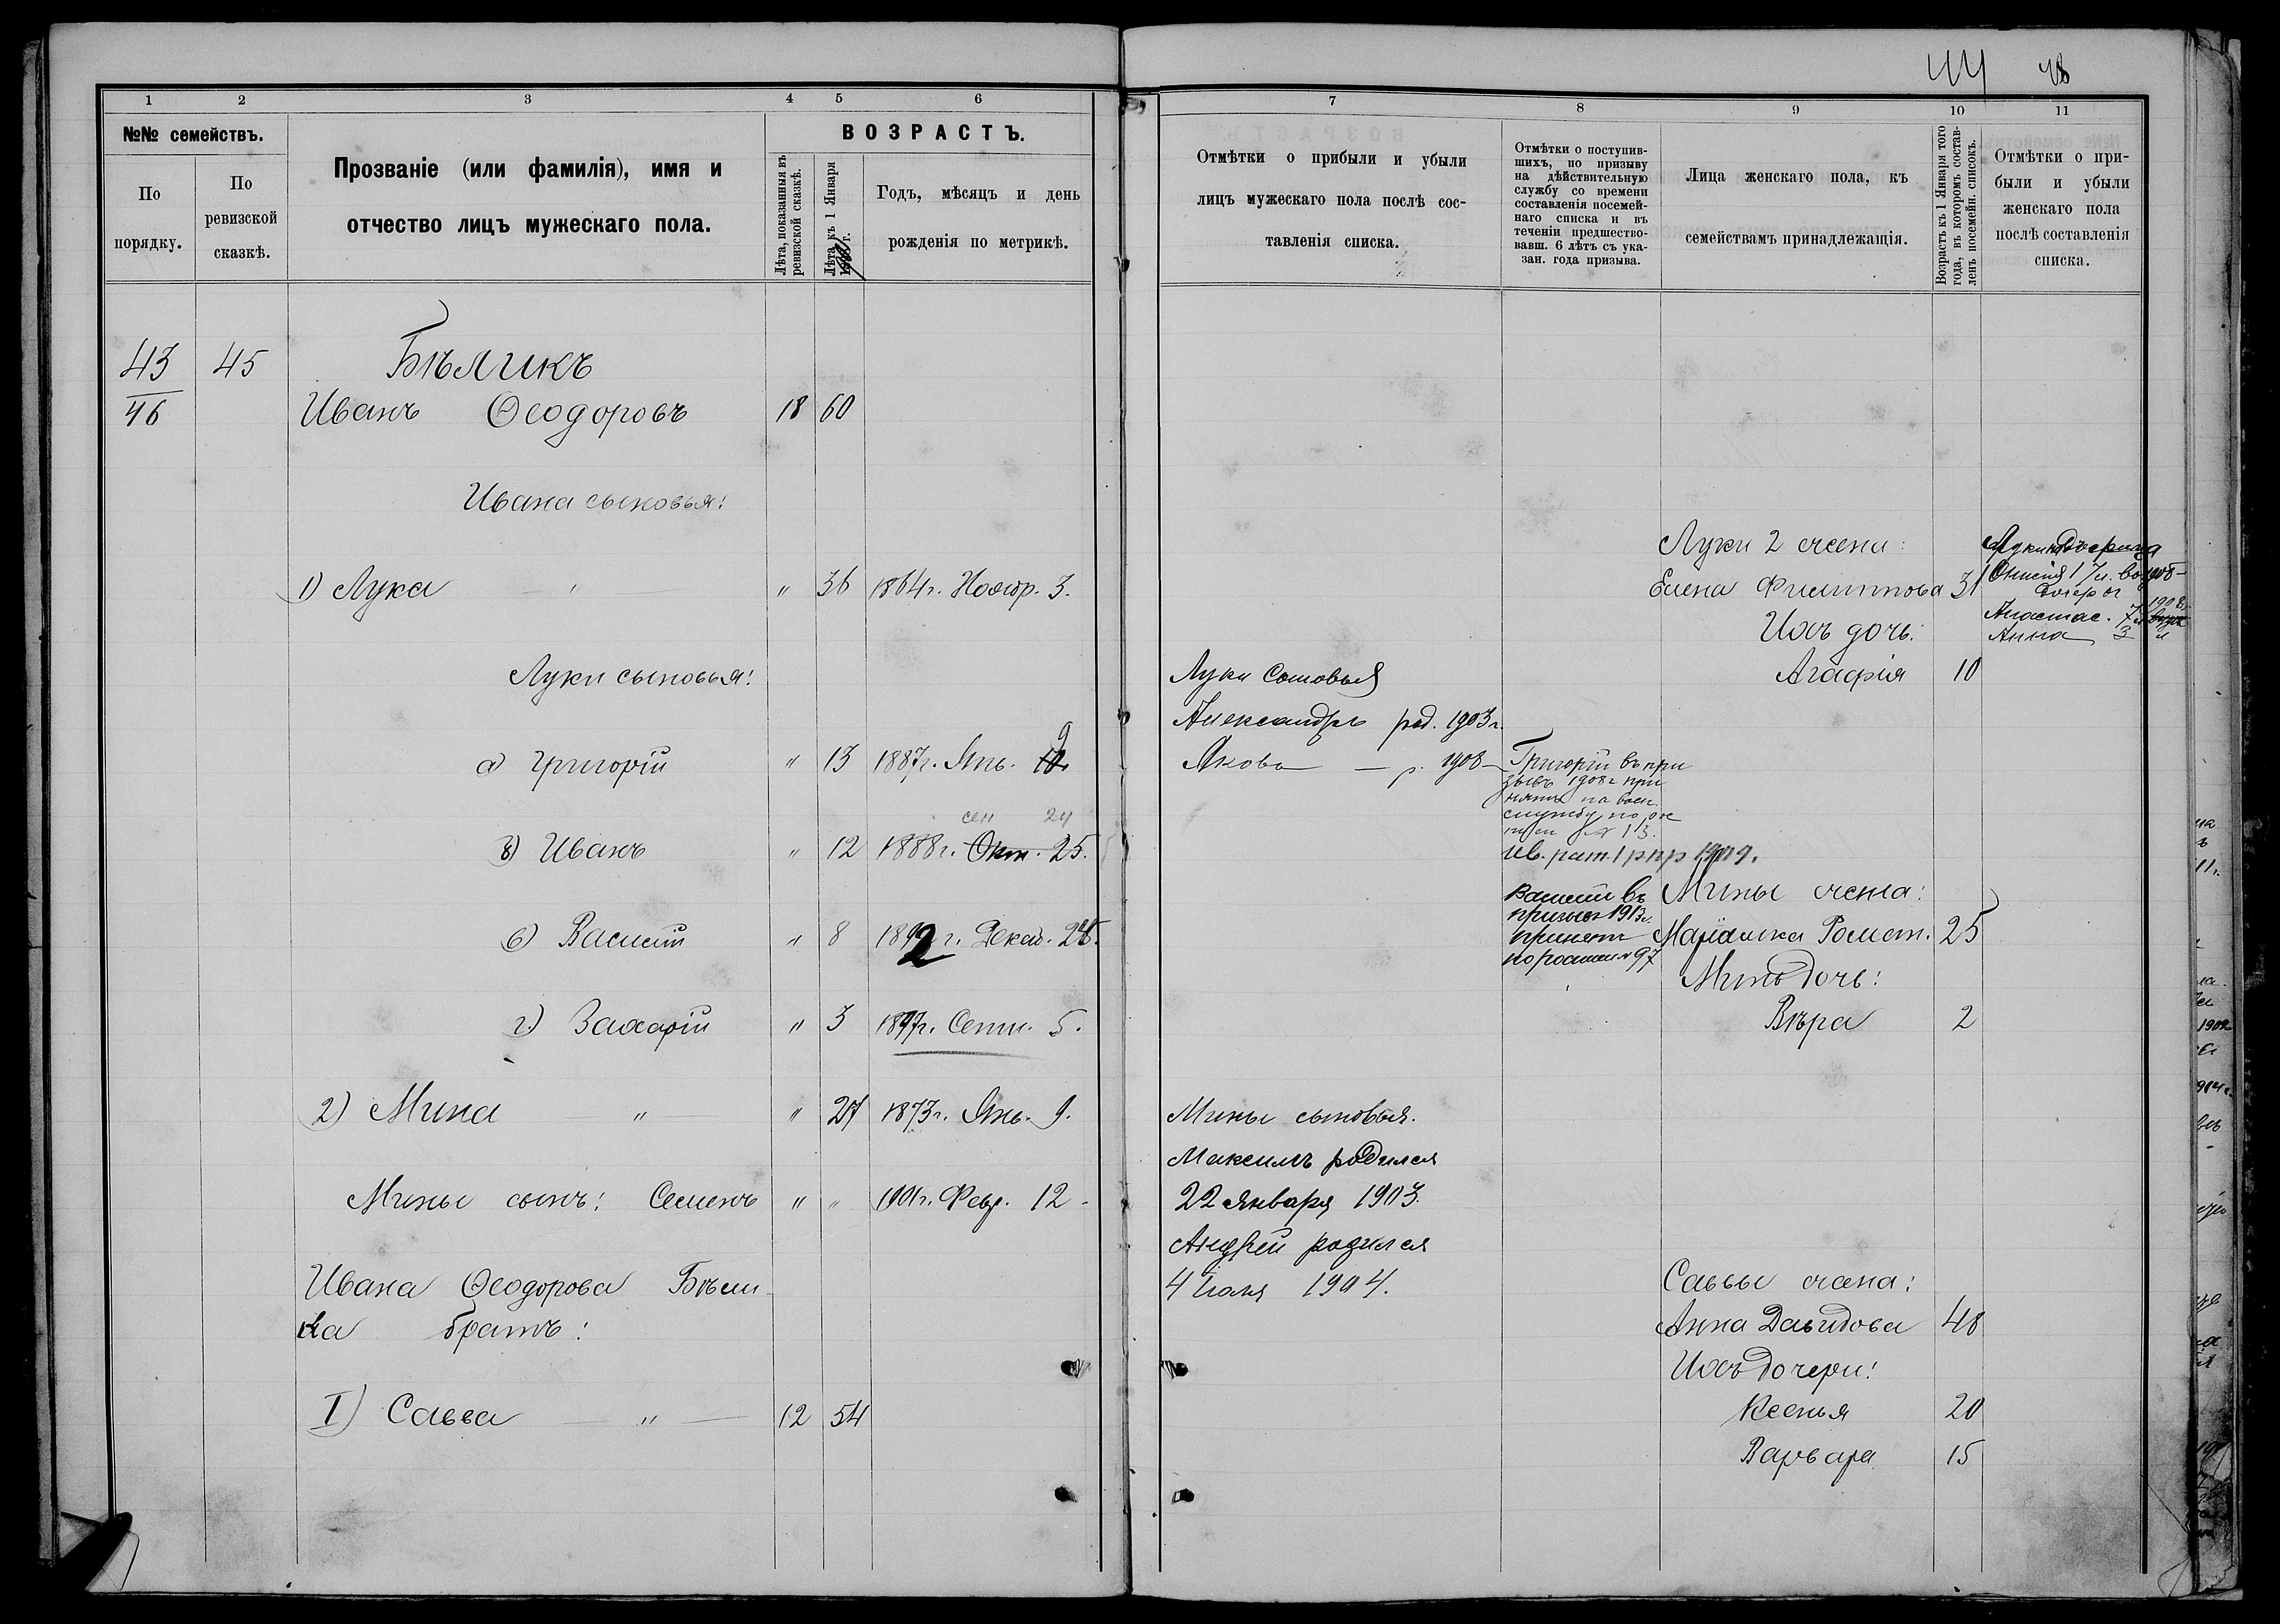 44 48
1 2 3 4 5 6
№№ семействъ.
По порядку.
По ревизской сказкѣ.
Прозваніе (или фамилія), имя и
отчество лицъ мужескаго пола.
ВОЗРАСТЪ.
Лѣта, показанныя въ ревизской сказкѣ.
Лѣта къ 1 Января
г.
Годъ, мѣсяцъ и день
рожденія по метрикѣ.
43 45 Бѣликъ
46 Иванъ Ѳеодоровъ 18 60
Ивана сыновья:
1) Лука " " 36 1864 г. Ноябр. 3.
Луки сыновья:
а) Григорій " 13 1887 г. Янв. 10. 9
сен 24
в) Иванъ " 12 1888 г. Окт. 25.
б) Василій " 8 1892 г. Декаб. 28.
г) Захарій " 3 1897 г. Сент. 5.
2) Мина " " 27 1873 г. Янв. 9.
Мины сынъ: Семенъ " " 1901 г. Февр. 12
Ивана Ѳеодорова Бѣли-
ка братъ:
I) Савва " 12 54
7 8 9 10 11
Отмѣтки о прибыли и убыли
лицъ мужескаго пола послѣ сос-
тавленія списка.
Отмѣтки о поступив-
шихъ, по призыву
на дѣйствительную
службу со времени
составленія посемей-
наго списка и въ
теченіи предшество-
вавш. 6 лѣтъ съ ука-
зан. года призыва.
Лица женскаго пола, къ
семействамъ принадлежащія.
Возрастъ къ 1 Января того
года, въ которомъ состав-
ленъ посемейн. списокъ.
Отмѣтки о при-
были и убыли
женскаго пола
послѣ составленія
списка.
Луки 2 жена:
Елена Филиппова 31
Ихъ дочь:
Агафія 10
1908
дочери
Анастас. 7 л 1908
Анна 3 л
Луки Сыновья
Александръ род. 1903 г.
Яковъ — р. 1908
Григорій въ при
зывъ 1908 г при
нятъ на воен.
службу по
№ 13.
Ив. рат. 1 р пр 1909.
Василій въ
призывъ 1913 г.
принятъ
№ 97
Мины жена:
Маріамка Роман. 25
Мины дочь:
Вѣра 2
Мины сыновья.
Максимъ родился
22 Января 1903.
Андрей родился
4 Іюля 1904.
Саввы жена:
Анна Давидова 48
Ихъ дочери:
Ксенья 20
Варвара 15